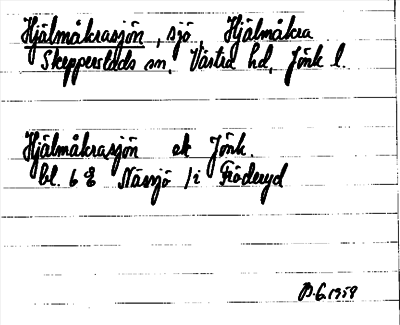 Hjälmåkrasjön, sjö, Hjälmåkra
Skepperstads sn, Västra hd, Jönk l.
Hjälmåkrasjön ek Jönk.
bl. 6 Nässjö /i Fröderyd
B.G. 1959